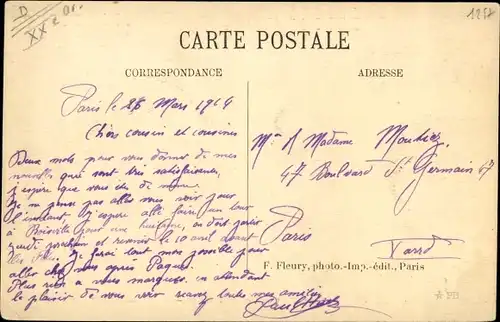 D
XXe Ar.
CARTE POSTALE
CORRESPONDANCE
ADRESSE
Paris le 26 Mars 19
Chers cousin et cousines
Deux mots pour vous donner de mes
nouvelles qui sont très satisfaisantes,
j'espère que vous êtes de même.
Je ne pense pas aller vous voir pour
l'instant. J'espère aller faire un tour
à pour une huitaine, on doit partir
jeudi prochain et revenir le 10 avril avant
les . Je ferai tout mon possible pour
aller chez vous après Pâques.
Plus rien à vous marquer, en attendant
le plaisir de vous voir recevez toutes mes amitiés
Paul
Mr & Madame
47 Boulevard St Germain 47
Paris
F. Fleury, photo.-Imp.-édit., Paris